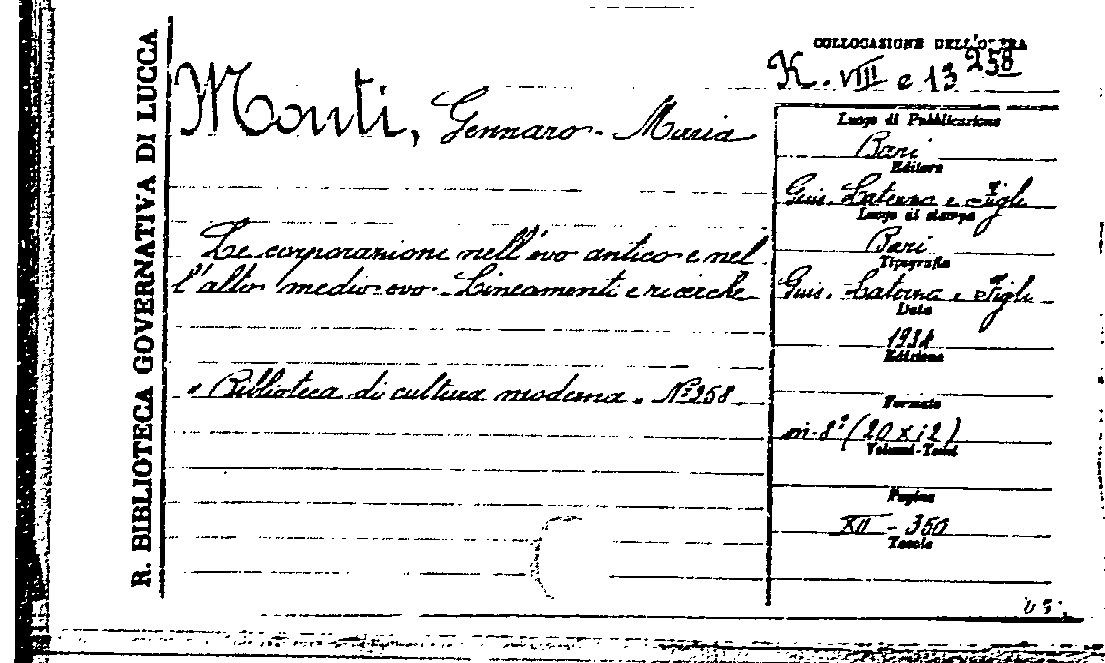 R. BIBLIOTECA GOVERNATIVA DI LUCCA
COLLOCAZIONE DELL'OPERA
K. VIII e 13 258
Monti, Gennaro-Maria
Le corporazione nell'evo antico e nel
l'alto medio-evo. Lineamenti e ricerche
« Biblioteca di cultura moderna » Nº 258
Luogo di Pubblicazione
Bari
Editore
Gius. Laterza e Figli
Luogo di stampa
Bari
Tipografia
Gius. Laterza e Figli
Data
1934
Edizione
Formato
in-8º (20 x 12)
Volumi-Tomi
Pagine
XII - 350
Tavole